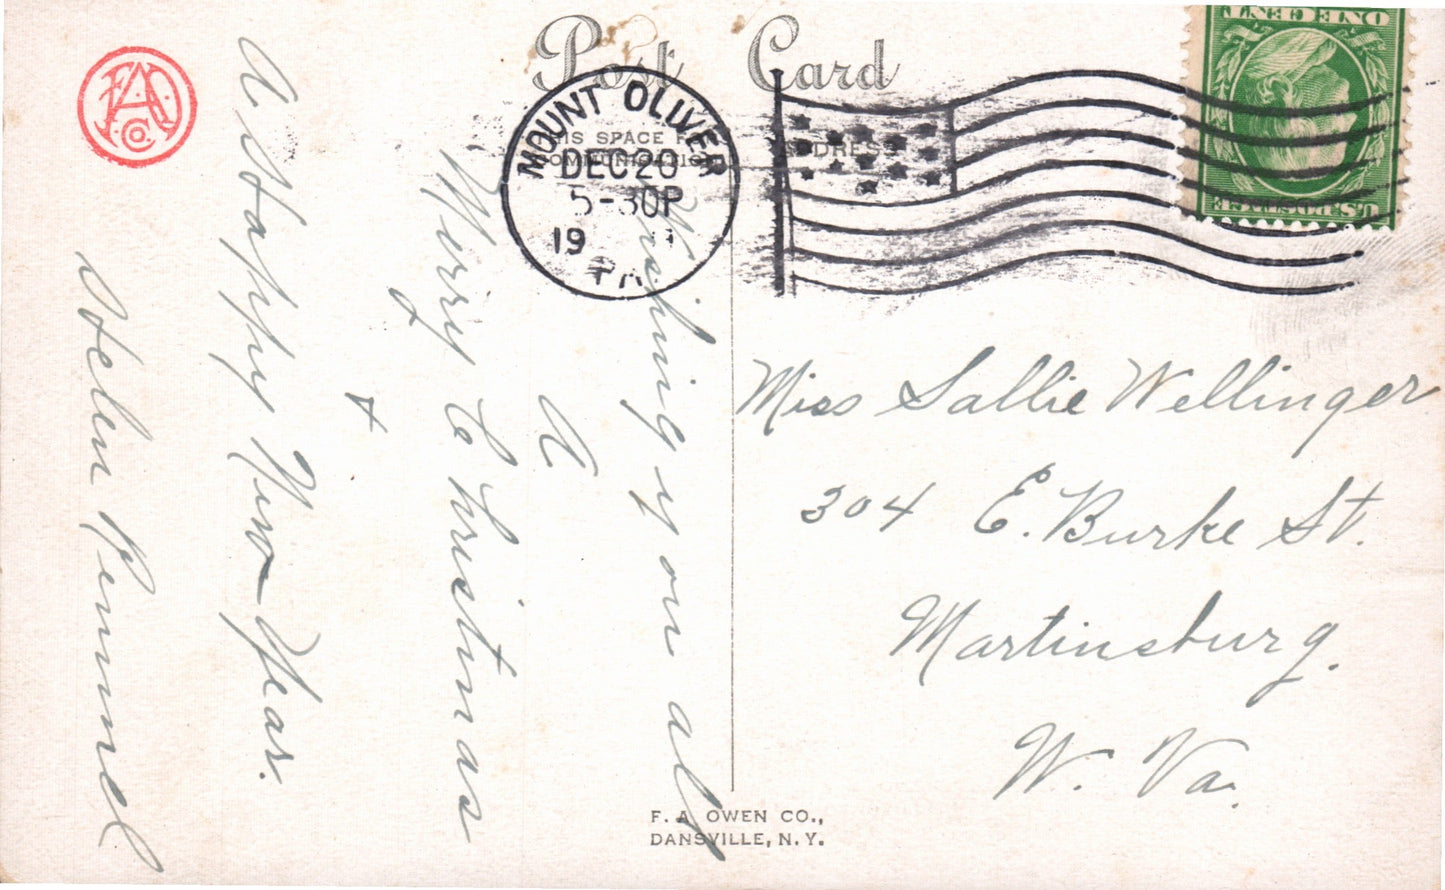 Post Card
THIS SPACE F
COMMUNICATIO
ADDRESS
MOUNT OLIVER
DEC 20
5-30P
19
PA
ONE CENT
U.S. POSTAGE
Wishing you all
A
Merry Christmas
+
A Happy New Year.
Helen Pimmel
Miss Sallie Wellinger
304 E. Burke St.
Martinsburg.
W. Va.
F. A. OWEN CO.,
DANSVILLE, N. Y.